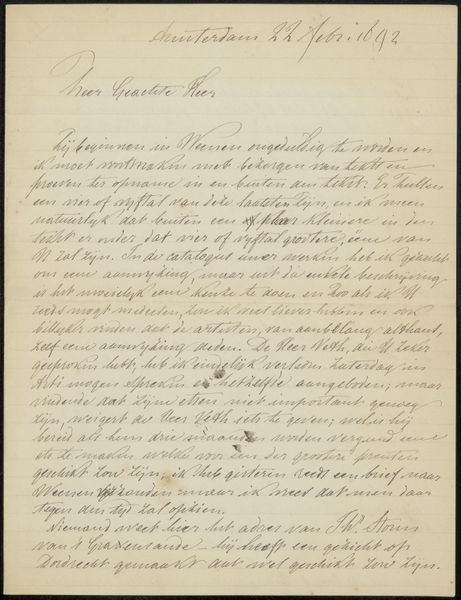 Amsterdam 22 Febr. 1892
Zeer Geachte Heer
Zij beginnen in Weenen ongeduldig te worden en
ik moet voortmaken met bezorgen van tekst en
proeven ter opname in en buiten den tekst. Er zullen
een vier of vyftal van deze laatsten zyn, en ik meen
natuurlyk dat buiten een paar kleinere in den
tekst er onder dat vier of vyftal grootere, eene van
U zal zyn. In de catalogus uwer werken heb ik gezocht
om eene aanwyzing, maar uit de enkele beschryving
is het moeielyk eene keuze te doen en zoo als ik U
reeds mogt mededeelen, zou ik veel liever hebben en ook
billyker vinden dat de artisten, van aanbelang althans,
zelf eene aanwyzing deden. De Heer Veth, die U zeker
gesproken hebt, heb ik eindelyk verleden Zaterdag in
Arti mogen spreken en hetzelfde aangeboden; maar
vindende dat zyne etsen niet important genoeg
zyn, weigert de Heer Veth iets te geven; wel is hy
bereid als hem drie maanden worden vergund eene
ets te maken welke voor een der grootere prenten
geschikt zou zyn. ik heb gisteren reeds een brief naar
Weenen gezonden maar ik vrees dat men daar
tegen den tyd zal opzien.
Niemand weet hier het adres van Th. Storm
van 's Gravesande – hy heeft een gezicht op
Dordrecht gemaakt dat wel geschikt zou zyn.